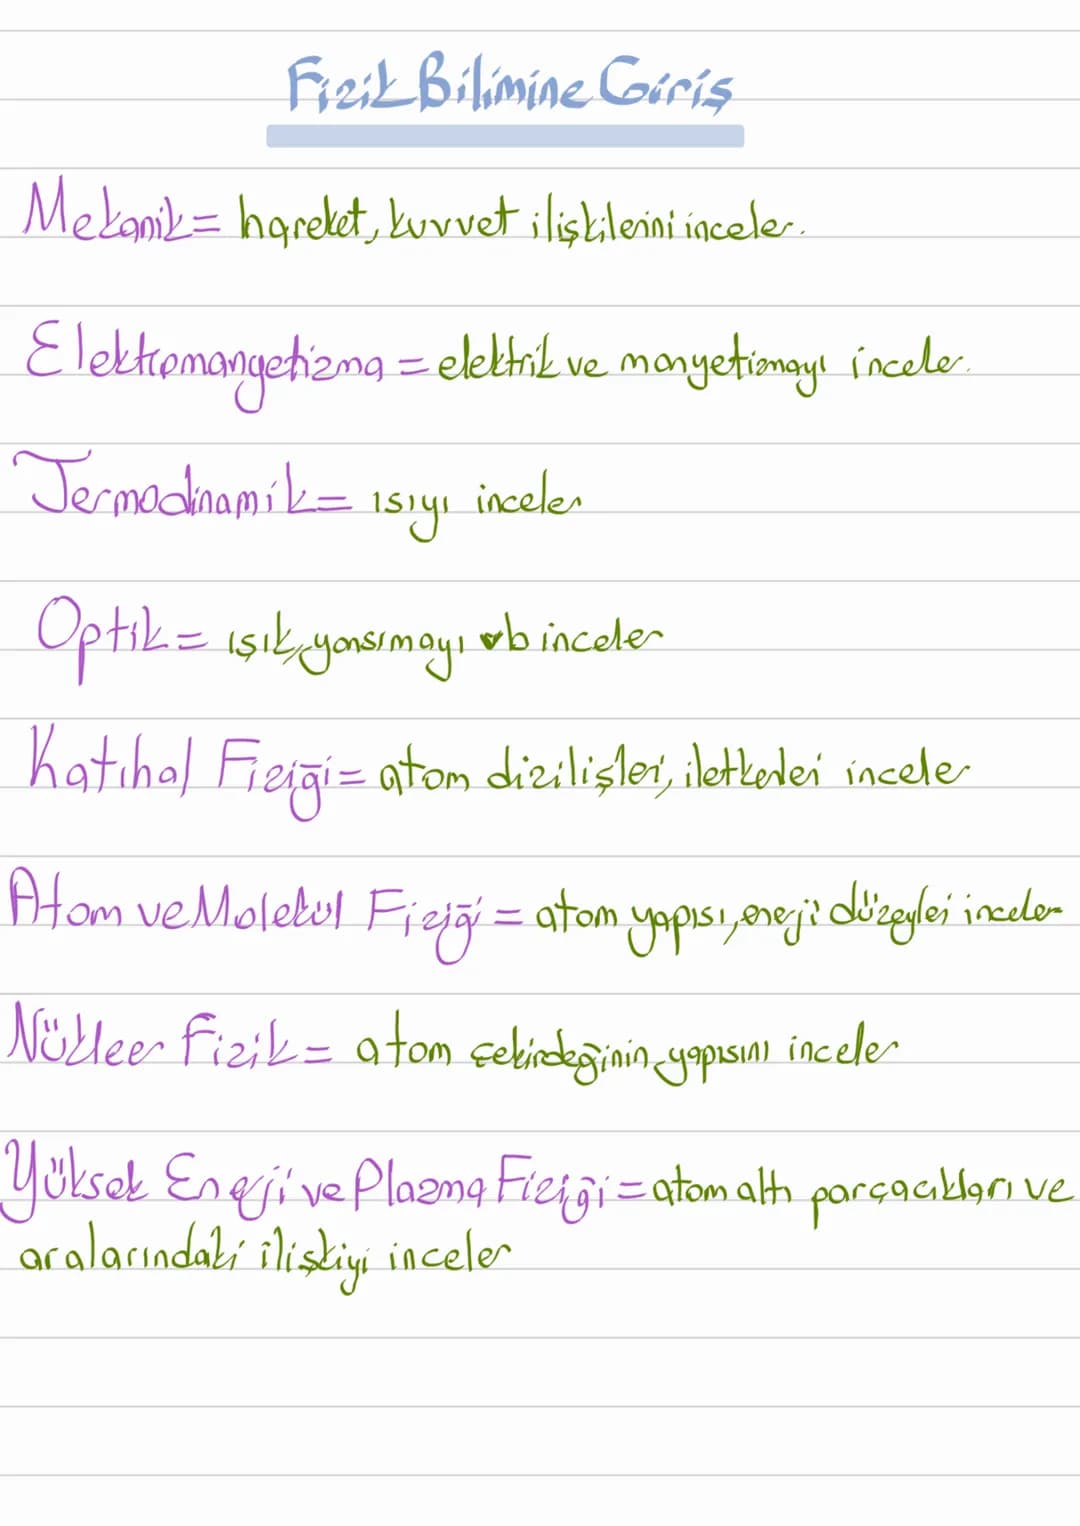 Fizik Bilimine Giriş
Mekanik = hareket, kuvvet ilişkilerini inceler.
Elektromangetizma = elektrik ve manyetizmayı inceler.
Termodinamik = ısıyı inceler
Optik = ışık, yansımayı vb inceler
Katıhal Fiziği = atom dizilişleri, iletkenleri inceler
Atom ve Molekül Fiziği = atom yapısı, enerji düzeyleri inceler
Nükleer Fizik = atom çekirdeğinin yapısını inceler
Yüksek Enerji ve Plazma Fiziği = atom altı parçacıkları ve
aralarındaki ilişkiyi inceler